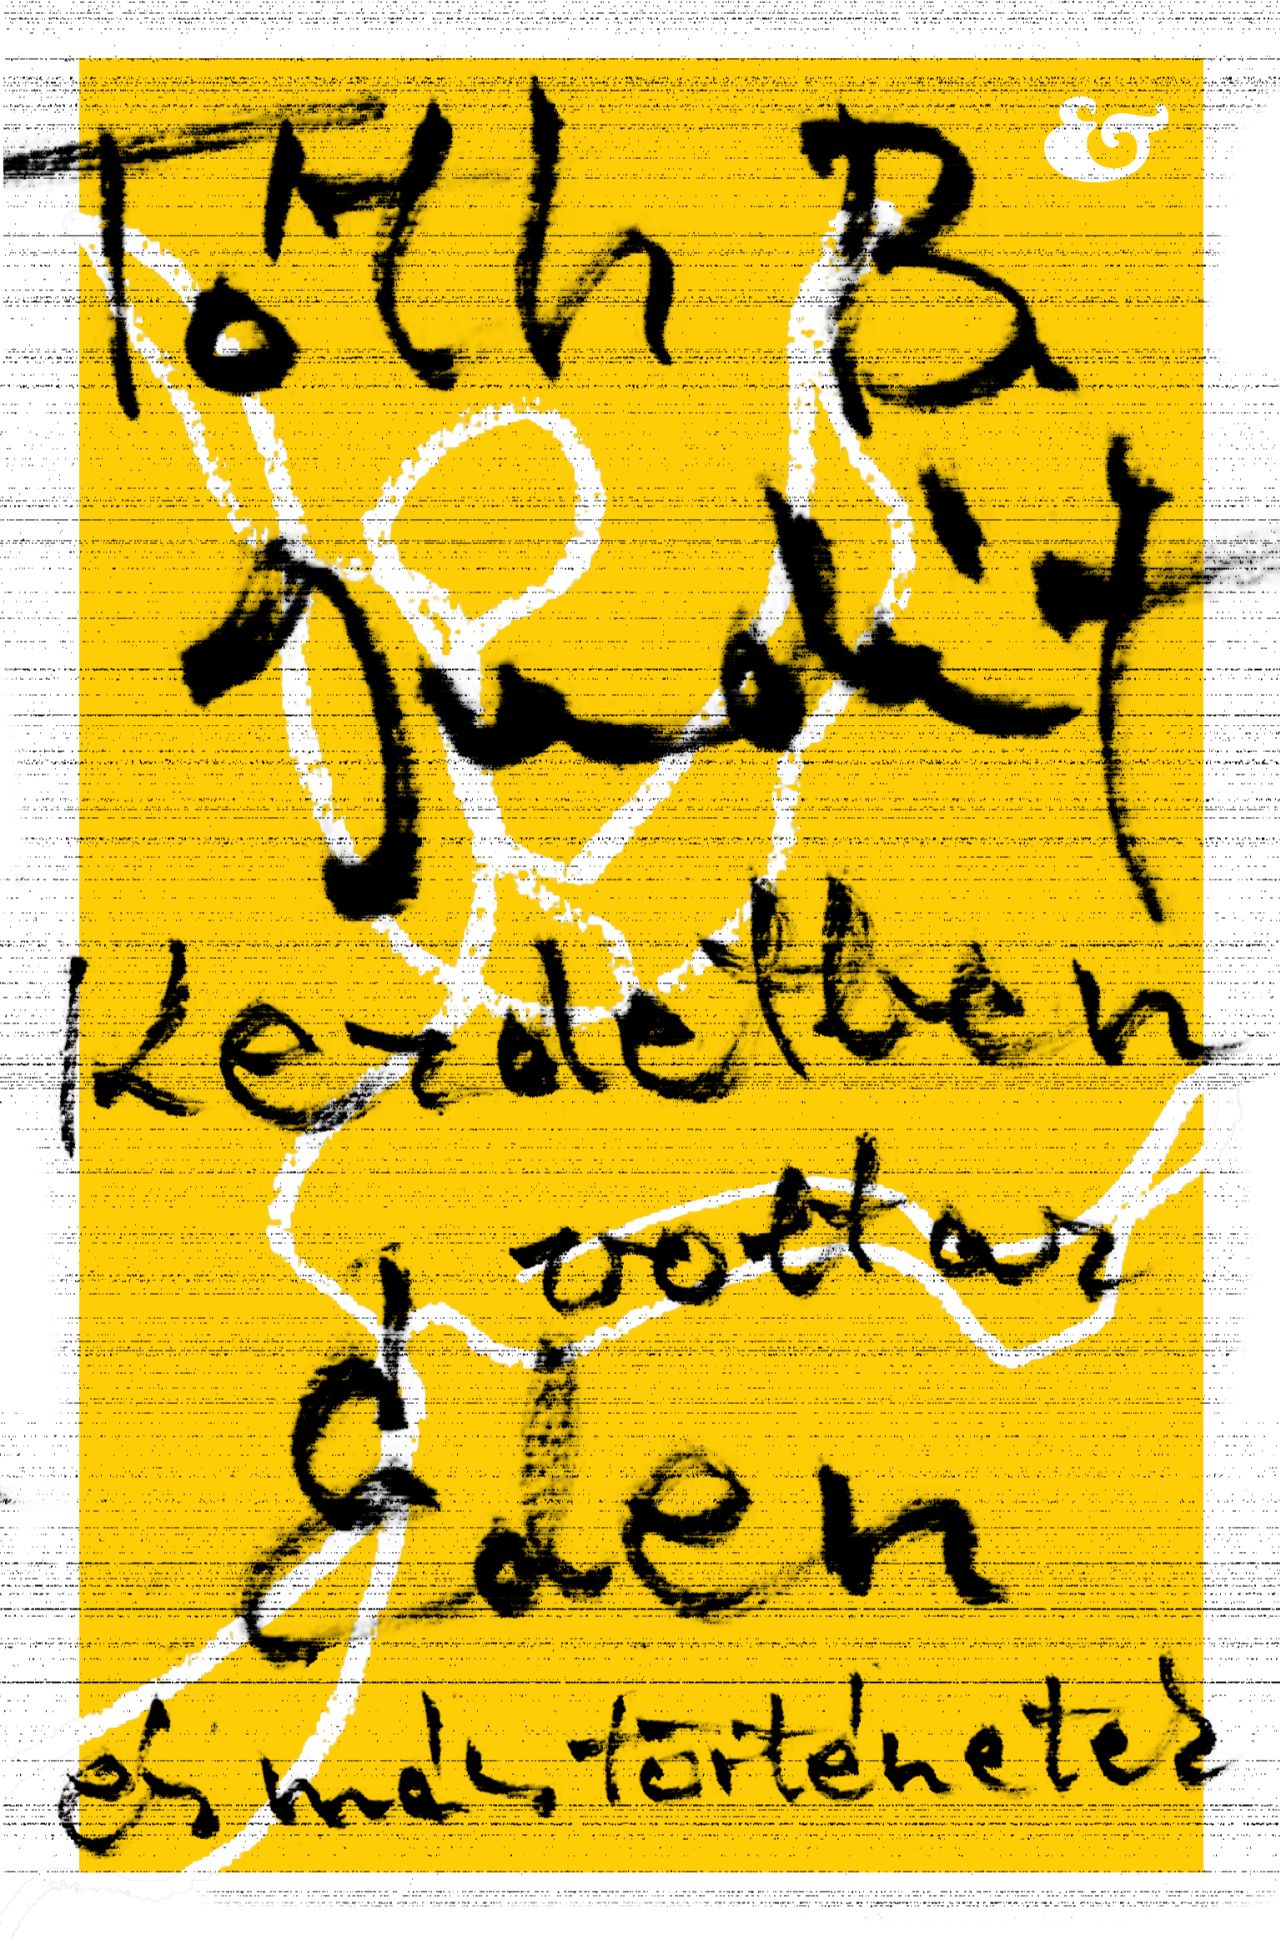 Tóth B
Judit
Kezdetben
volt az
Éden
és más történetek
&